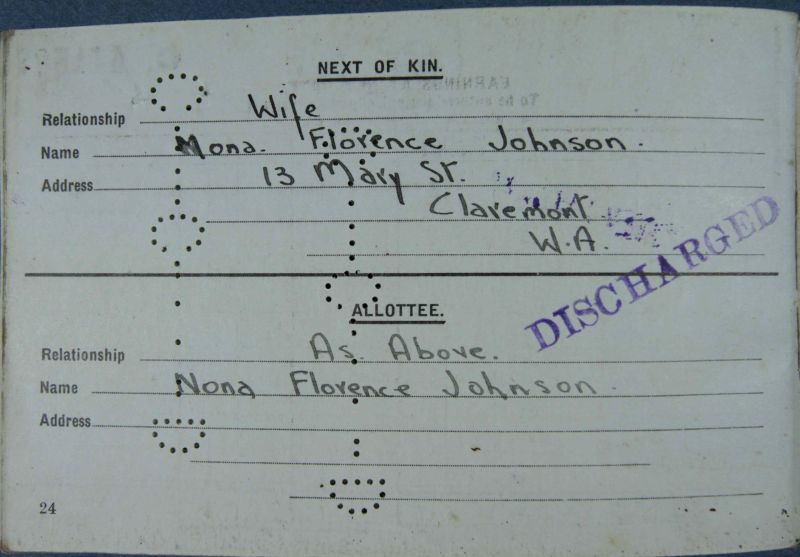 NEXT OF KIN.
Relationship Wife
Name Mona. Florence Johnson.
Address 13 Mary St.
Claremont
W.A.
DISCHARGED
ALLOTTEE.
Relationship As Above.
Name Nona Florence Johnson.
Address
24